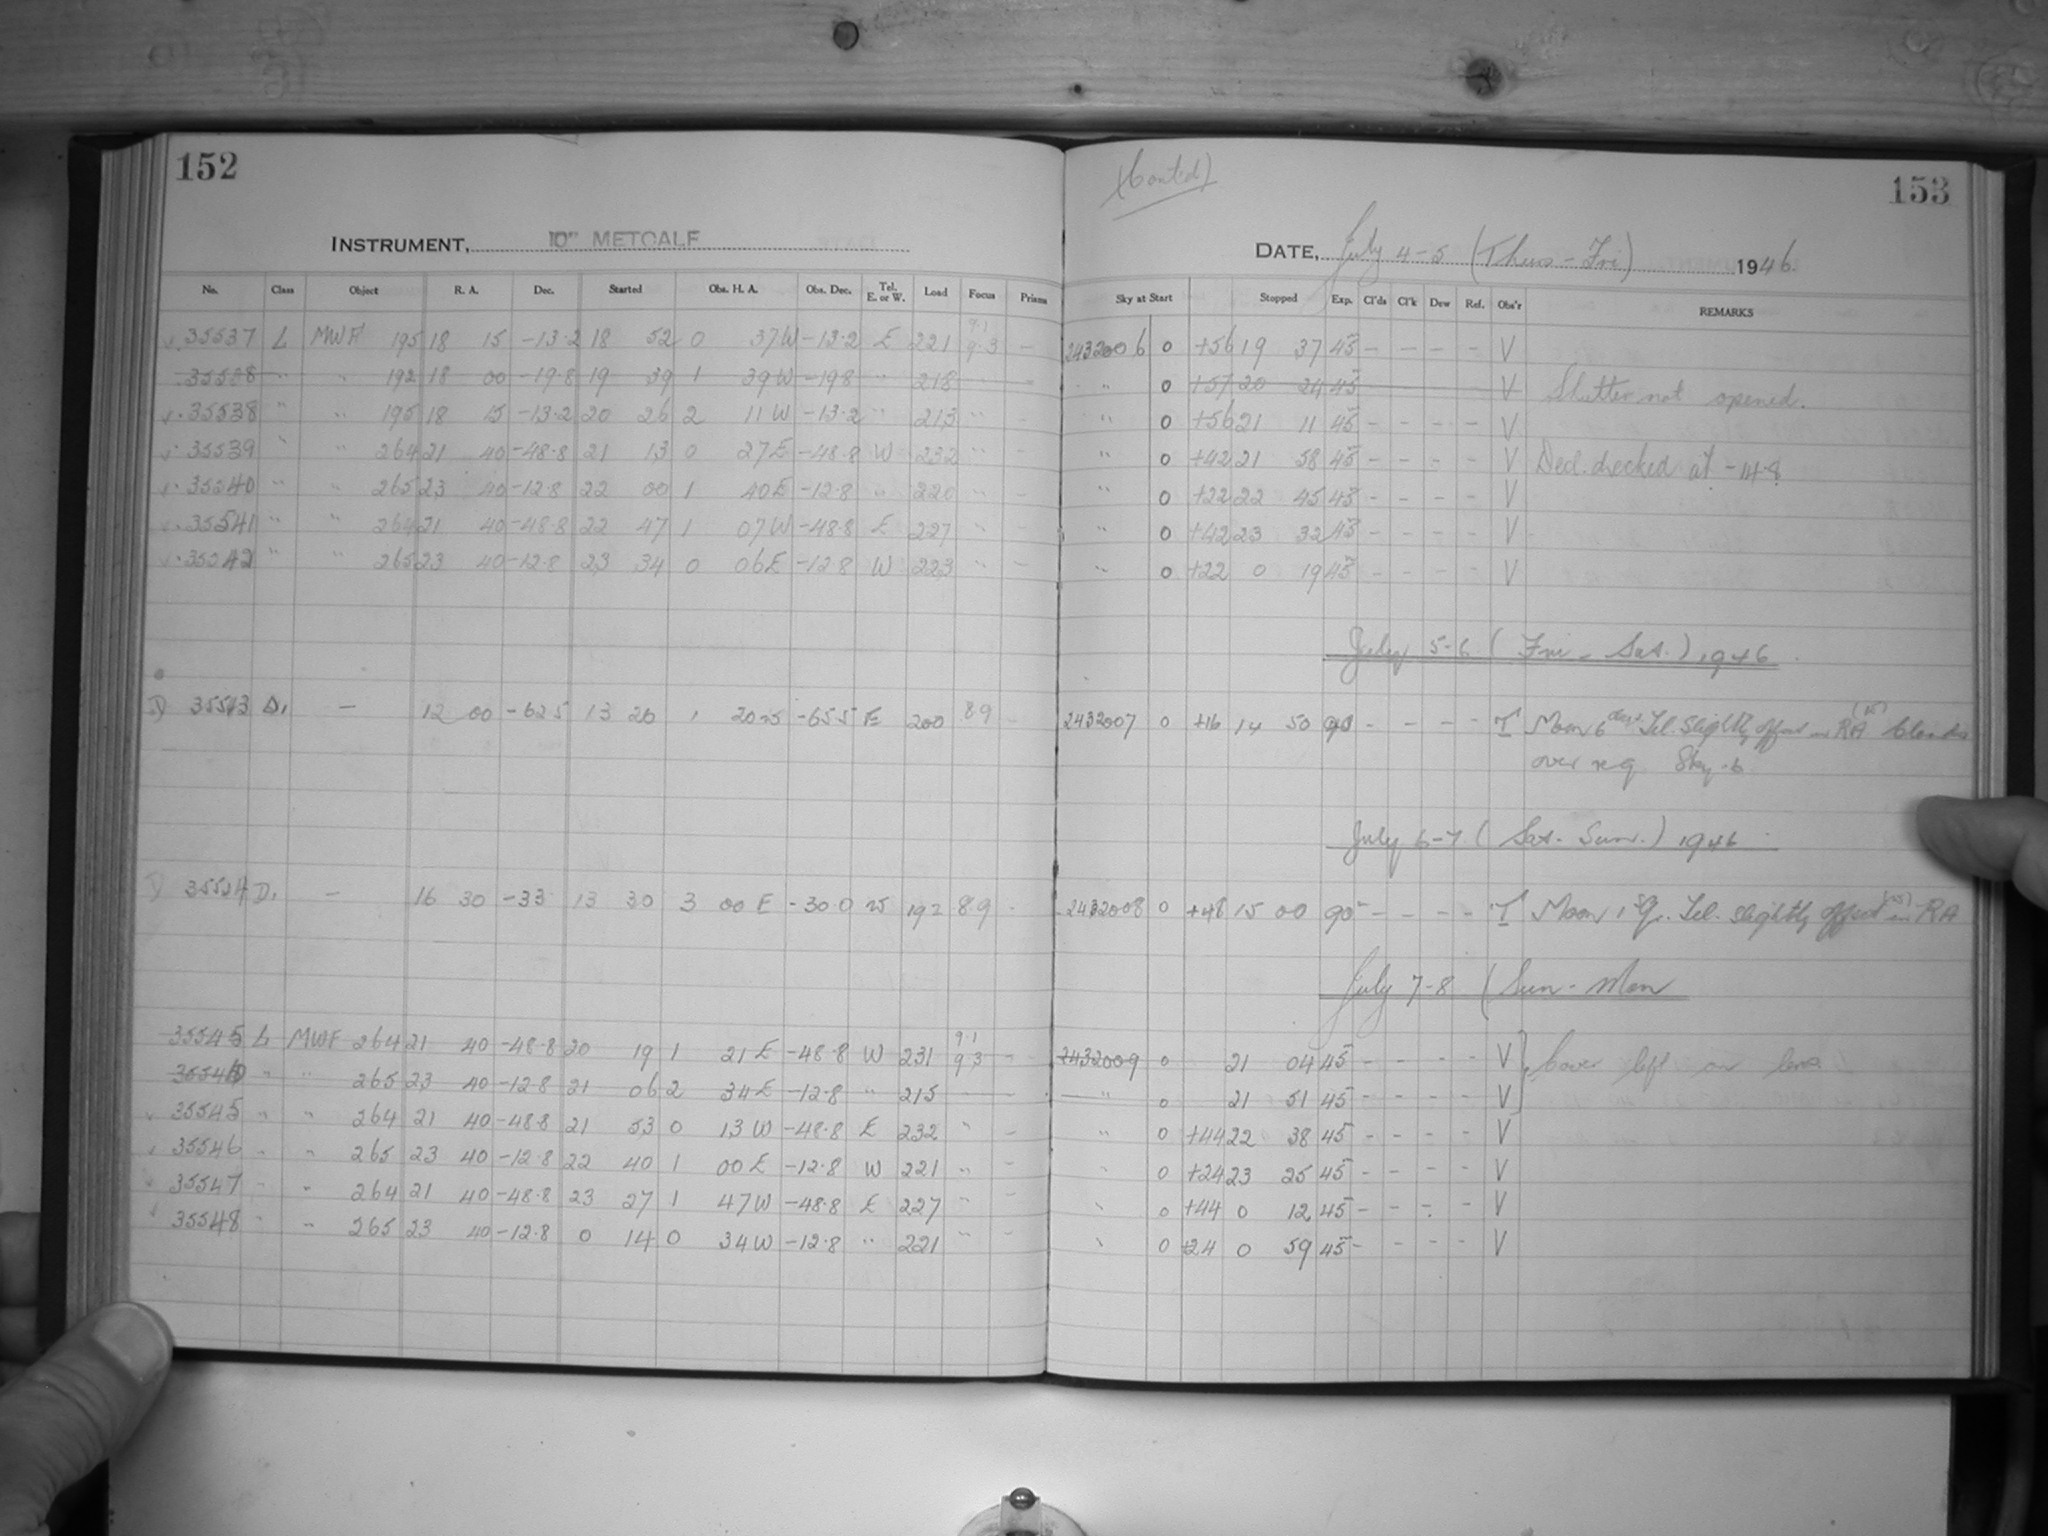 152
INSTRUMENT, 10" METCALF
No. Class Object R. A. Dec. Started Obs. H. A. Obs. Dec. Tel. E. or W. Load Focus Prisms
35537 L MWF 195 18 15 -13.2 18 52 0 37W -13.2 E 221 9.1 9.3 -
35538 " " 192 18 00 -19.8 19 39 1 39W -19.8 " 218
35538 " " 195 18 15 -13.2 20 26 2 11W -13.2 " 213 " -
35539 " " 264 21 40 -48.8 21 13 0 27E -48.8 W 232 " -
35540 " " 265 23 40 -12.8 22 00 1 40E -12.8 " 220 " -
35541 " " 264 21 40 -48.8 22 47 1 07W -48.8 E 227 " -
35542 " " 265 23 40 -12.8 23 34 0 06E -12.8 W 223 " -
D 35543 D. - 12 00 -62.5 13 20 1 -65.5 E 200 89 -
D 35544 D. - 16 30 -33 13 30 3 00 E -30.0 192 89 -
35545 L MWF 264 21 40 -48.8 20 19 1 21E -48.8 W 231 9.1 9.3 -
35546 " " 265 23 40 -12.8 21 06 2 34E -12.8 " 215
35545 " " 264 21 40 -48.8 21 53 0 13W -48.8 E 232 " -
35546 " " 265 23 40 -12.8 22 40 1 00E -12.8 W 221 " -
35547 " " 264 21 40 -48.8 23 27 1 47W -48.8 E 227 " -
35548 " " 265 23 40 -12.8 0 14 0 34W -12.8 " 221 " -
(Contd)
153
DATE, July 4-5 (Thurs-Fri) 1946.
Sky at Start Stopped Exp. Cl'ds Cl'k Dew Ref. Obs'r REMARKS
2432006 0 +56 19 37 45 - - - - V
" 0 +57 20 24 45 V Shutter not opened.
" 0 +56 21 11 45 - - - - V
" 0 +42 21 58 45 - - - - V Dec. checked at -14.8
" 0 +22 22 45 45 - - - - V
" 0 +42 23 32 45 - - - - V
" 0 +22 0 19 45 - - - - V
July 5-6 (Fri - Sat.) 1946
2432007 0 +16 14 50 90 - - - - T Moon 6 days. Tel. slightly offset in RA clouds
over Sky
July 6-7 (Sat - Sun.) 1946
2432008 0 +48 15 00 90 - - - - T Moon 1 Qr. Tel. slightly offset in RA
July 7-8 (Sun - Mon
2432009 0 21 04 45 - - - - V Cover left on lens
" 0 21 51 45 - - - - V
" 0 +44 22 38 45 - - - - V
" 0 +24 23 25 45 - - - - V
" 0 +44 0 12 45 - - - - V
" 0 +24 0 59 45 - - - - V